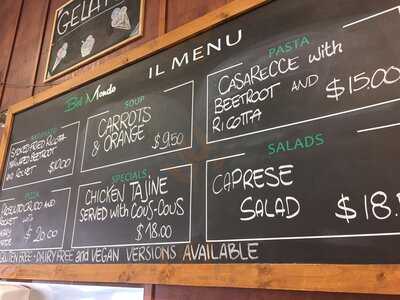 GELAT
IL MENU
Bel Mondo
SMOKED DRIED RICOTTA
BEETROOT
AND ROCKET
$10.00
SOUP
CARROTS
& ORANGE
$9.50
PASTA
CASARECCE with
BEETROOT AND
RICOTTA
$15.00
PIZZA
PROSCIUTTO CRUDO AND
ROCKET
$20.00
SPECIALS
CHICKEN TAJINE
SERVED with COUS-COUS
$18.00
SALADS
CAPRESE
SALAD
$18.
GLUTEN FREE - DAIRY FREE and VEGAN VERSIONS AVAILABLE